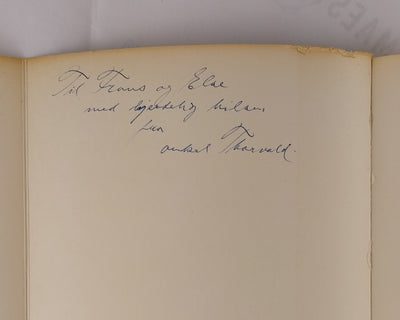 Til Frans og Else
med hjertelig hilsen
fra
onkel Thorvald.